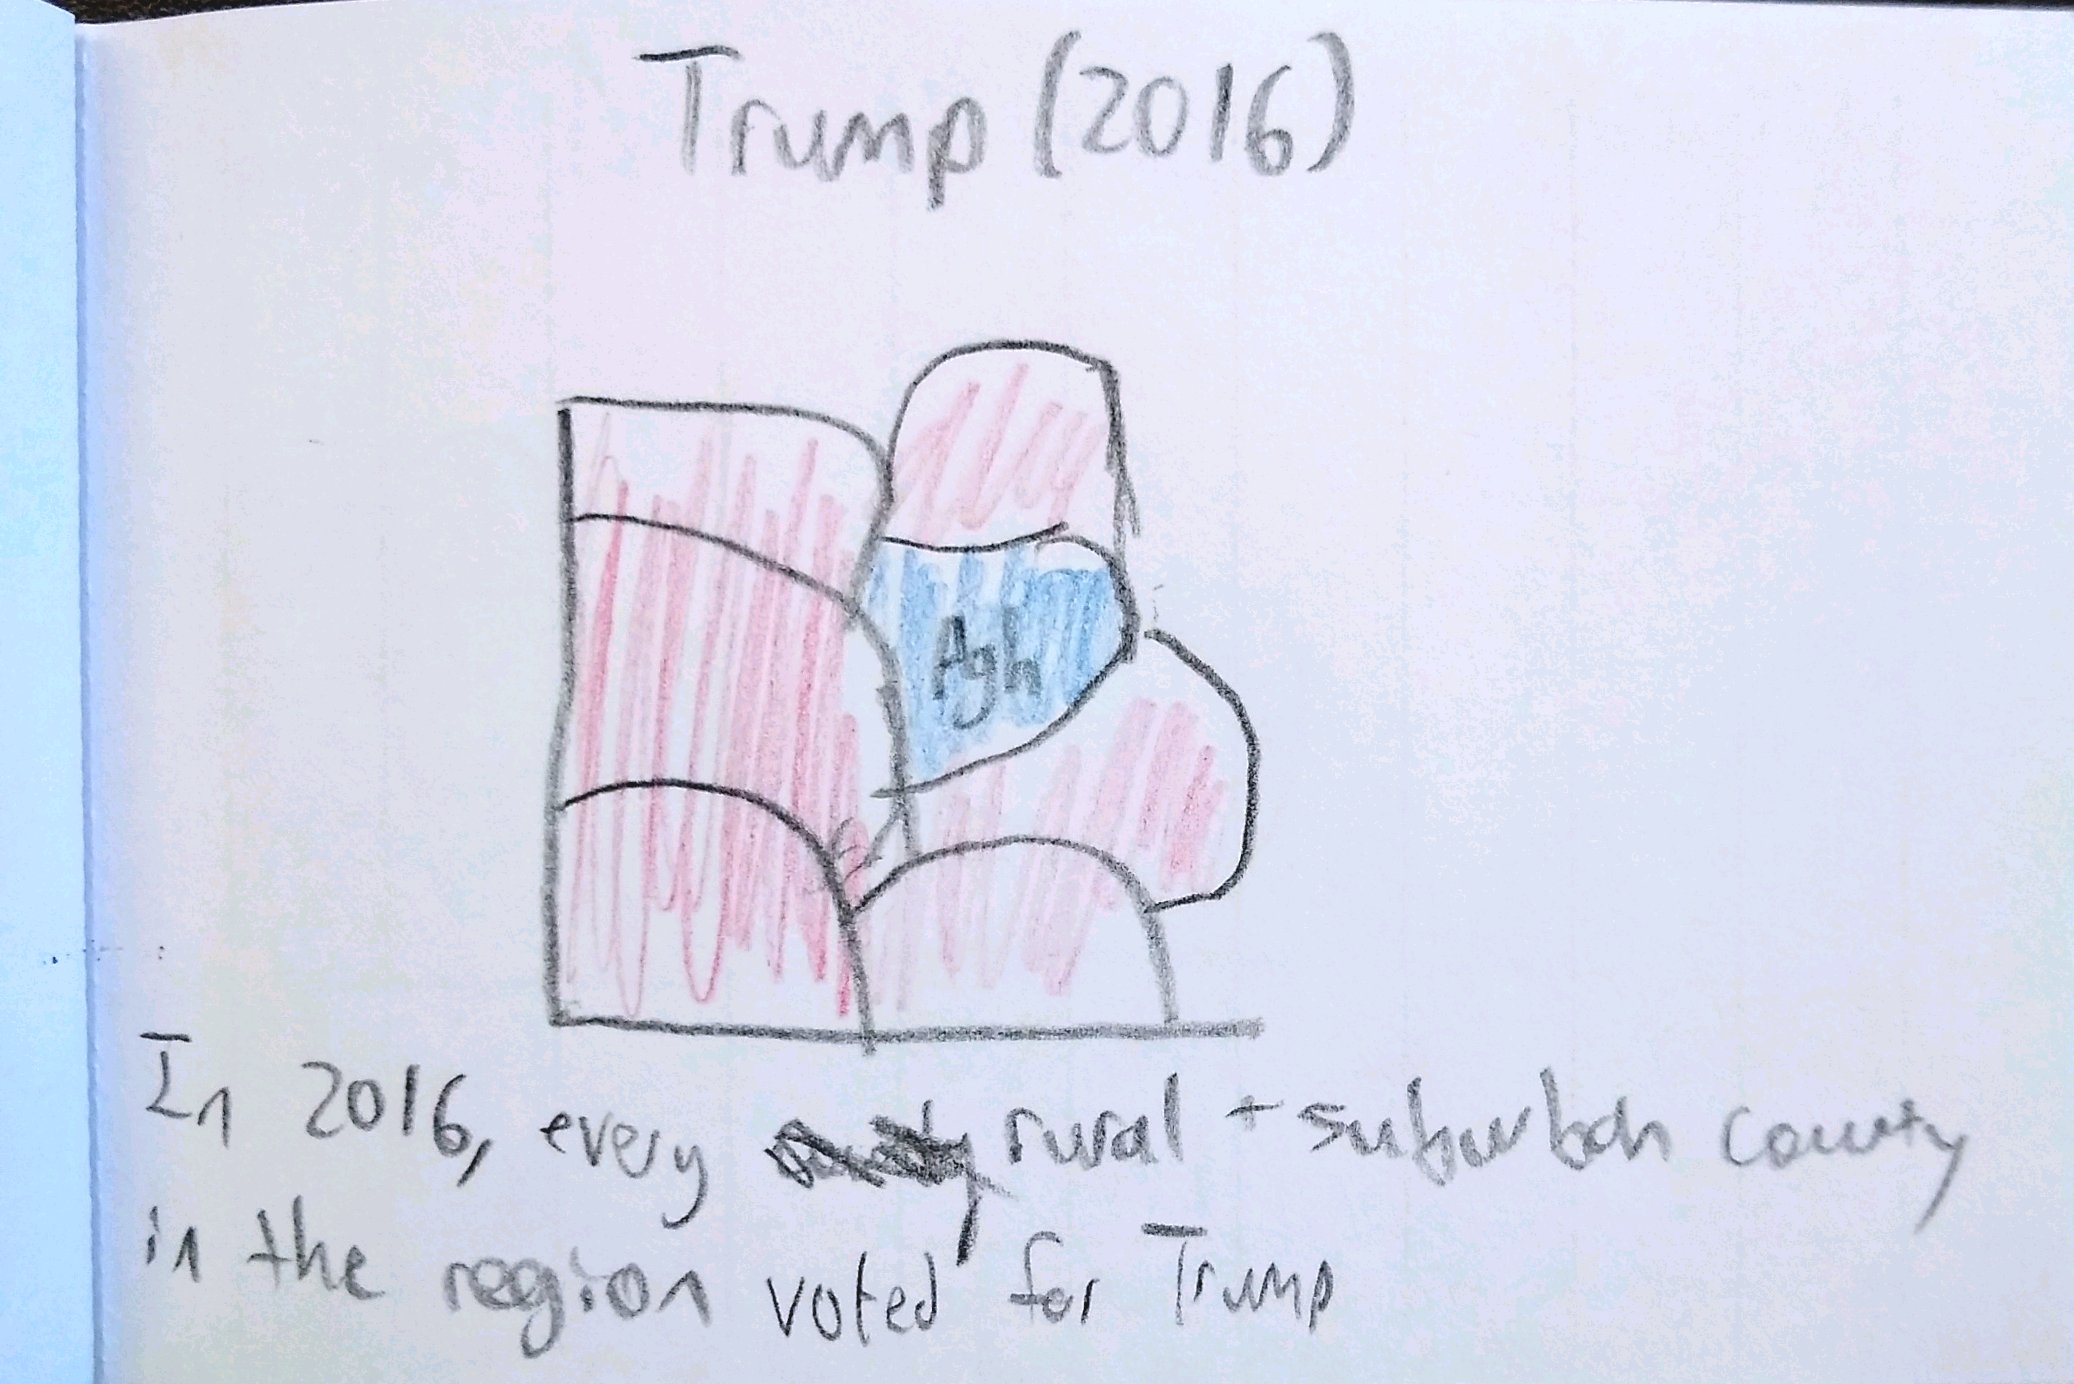 Trump (2016)
Agh
In 2016, every rural + suburban county
in the region voted for Trump